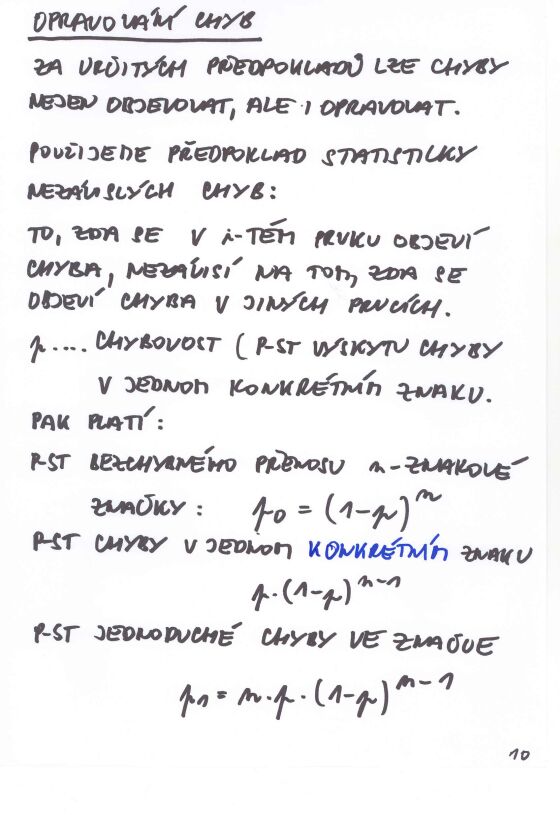 OPRAVOVÁNÍ CHYB
ZA URČITÝCH PŘEDPOKLADŮ LZE CHYBY
NEJEN OBJEVOVAT, ALE I OPRAVOVAT.
POUŽIJEME PŘEDPOKLAD STATISTICKY
NEZÁVISLÝCH CHYB:
TO, ZDA SE V i-TÉM PRVKU OBJEVÍ
CHYBA, NEZÁVISÍ NA TOM, ZDA SE
OBJEVÍ CHYBA V JINÝCH PRVCÍCH.
p.... CHYBOVOST (P-ST VÝSKYTU CHYBY
V JEDNOM KONKRÉTNÍM ZNAKU.
PAK PLATÍ:
P-ST BEZCHYBNÉHO PŘENOSU n-ZNAKOVÉ
ZNAČKY: p₀ = (1-p)ⁿ
P-ST CHYBY V JEDNOM KONKRÉTNÍM ZNAKU
p·(1-p)ⁿ⁻¹
P-ST JEDNODUCHÉ CHYBY VE ZNAČCE
p₁ = n·p·(1-p)ⁿ⁻¹
10